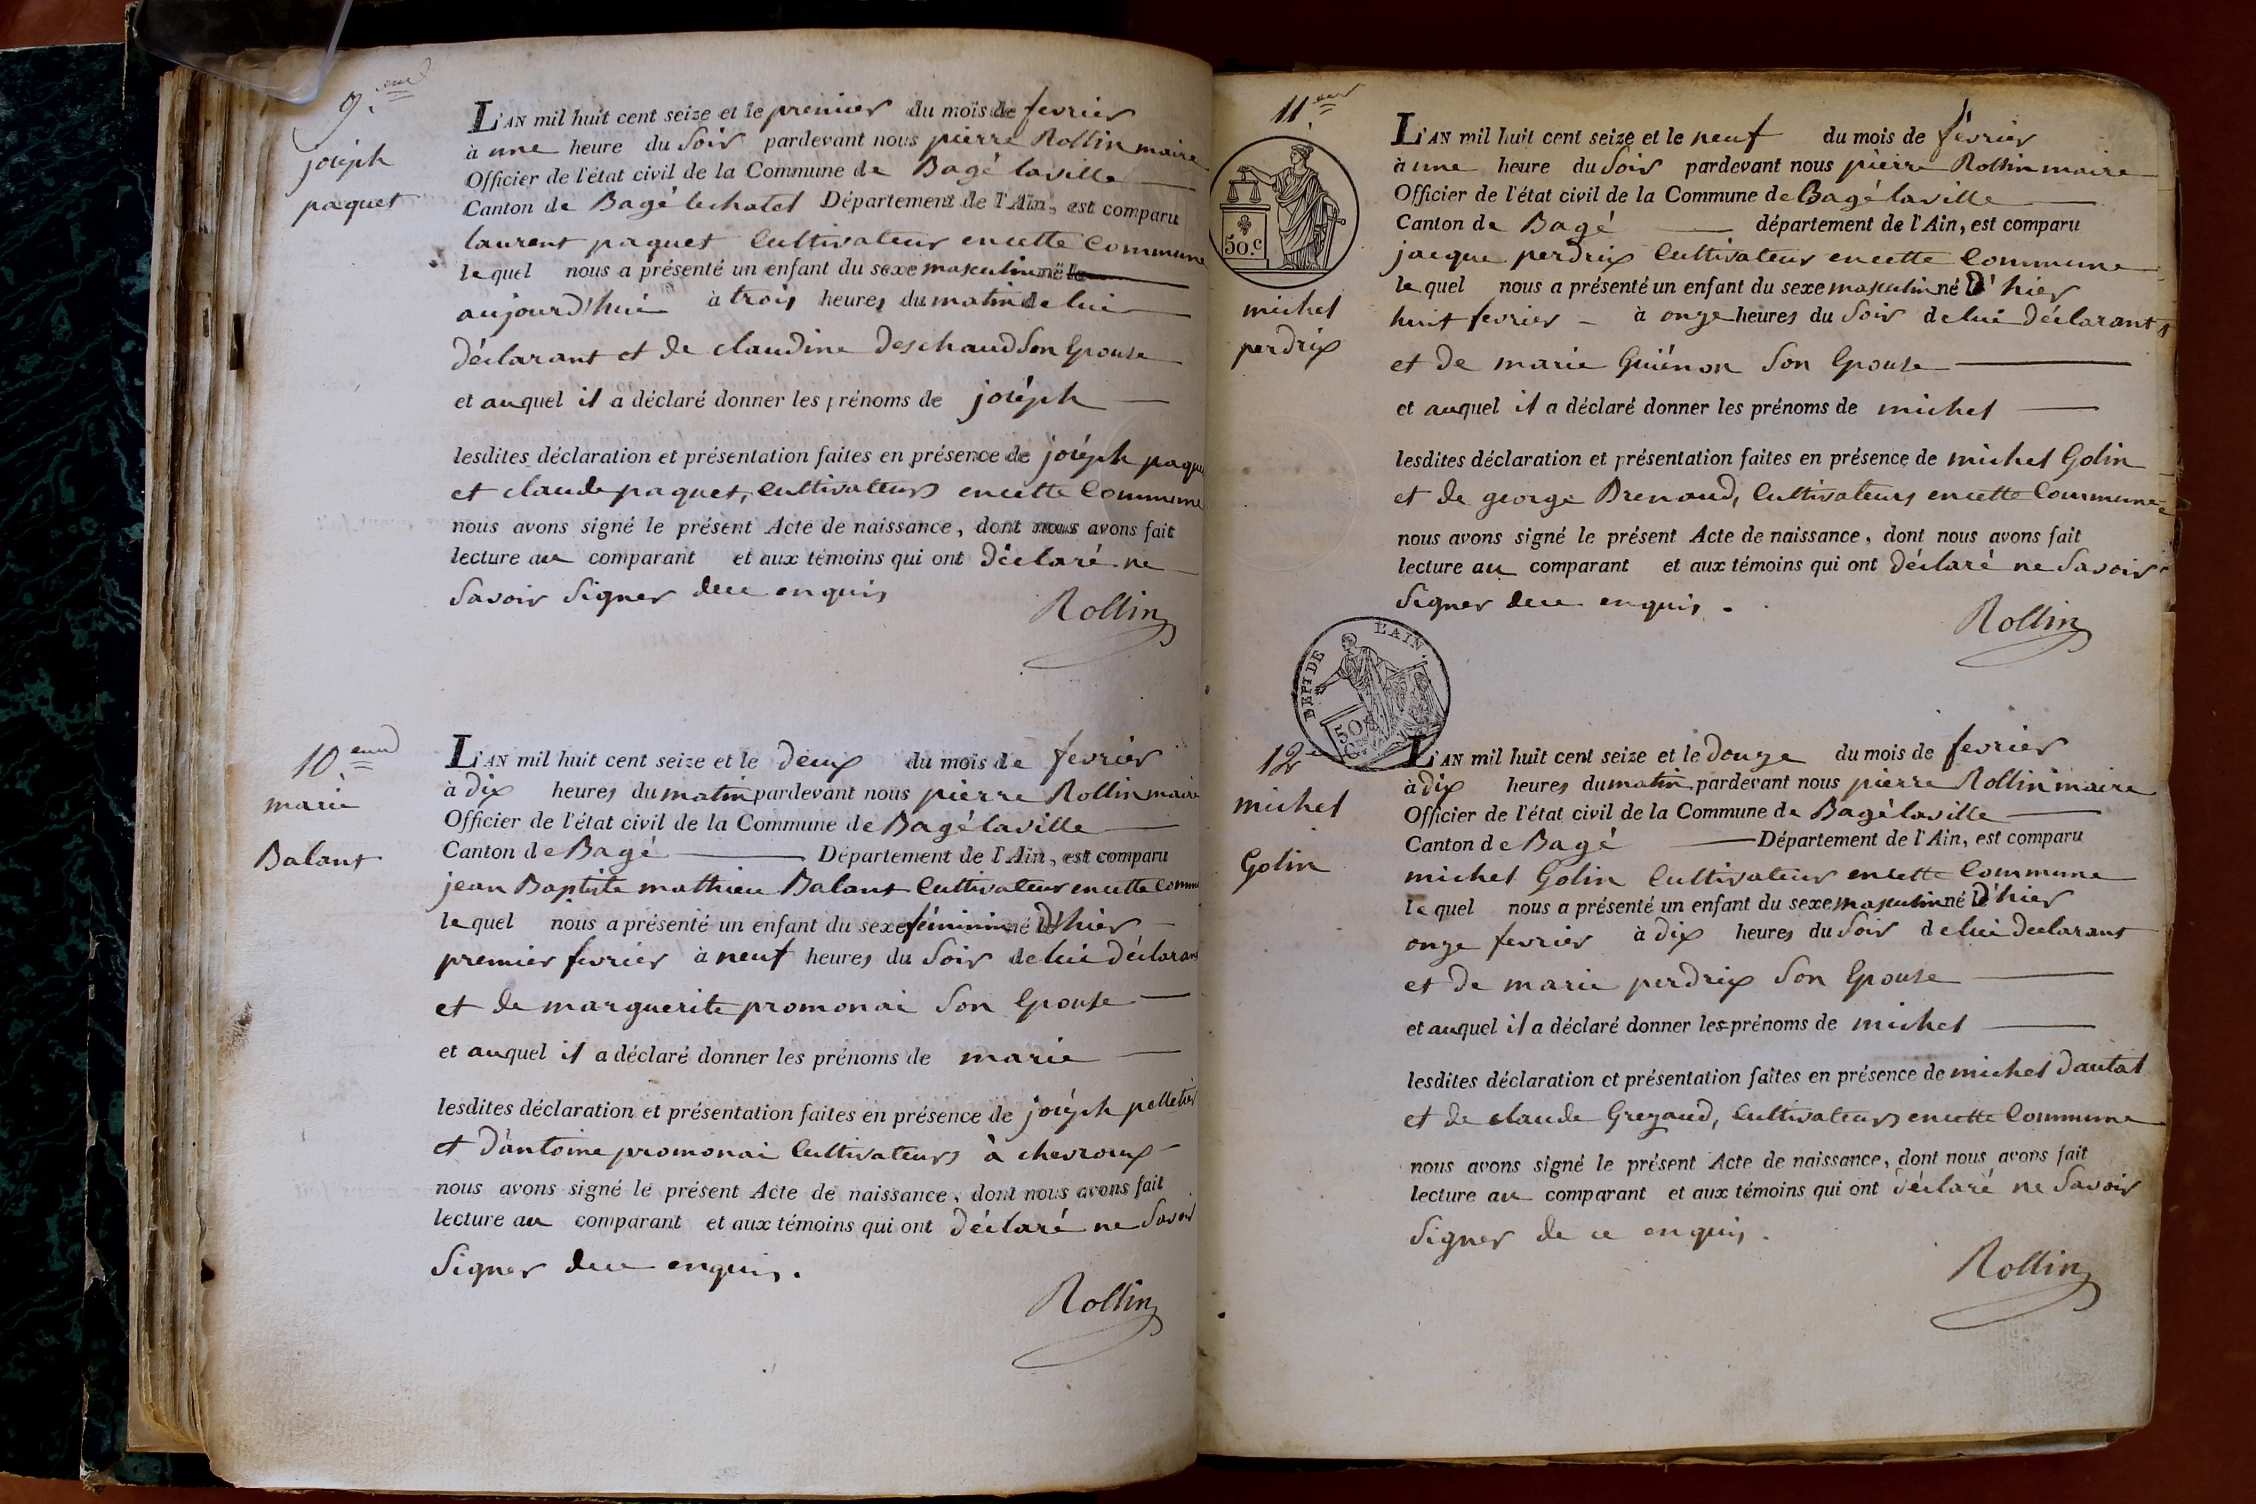 9.eme
joséph
paquet
L'AN mil huit cent seize et le premier du mois de fevrier
à une heure du Soir pardevant nous pierre Rollin maire
Officier de l'état civil de la Commune de Bagé laville
Canton de Bagé lechatel Département de l'Ain, est comparu
laurent paquet Cultivateur encette Commune
lequel nous a présenté un enfant du sexe masculin né
aujourd'hui à trois heures du matin de lui
déclarant et de claudine deschaud Son Epouse
et auquel il a déclaré donner les prénoms de joséph
lesdites déclaration et présentation faites en présence de joséph paquet
et claude paquet, Cultivateurs encette Commune
nous avons signé le présent Acte de naissance, dont nous avons fait
lecture au comparant et aux témoins qui ont déclaré ne
Savoir Signer dece enquis
Rollin
10.eme
marie
Balant
L'AN mil huit cent seize et le deux du mois de fevrier
à dix heures du matin pardevant nous pierre Rollin maire
Officier de l'état civil de la Commune de Bagé laville
Canton de Bagé Département de l'Ain, est comparu
jean Baptiste mathieu Balant Cultivateur encette Commu
lequel nous a présenté un enfant du sexe féminin né d'hier
premier fevrier à neuf heures du Soir de lui déclarant
et de marguerite promonai Son Epouse
et auquel il a déclaré donner les prénoms de marie
lesdites déclaration et présentation faites en présence de joséph pelletier
et d'antoine promonai Cultivateurs à chevroux
nous avons signé le présent Acte de naissance, dont nous avons fait
lecture au comparant et aux témoins qui ont déclaré ne Savoir
Signer dece enquis.
Rollin
11.eme
50.c
michel
perdrix
L'AN mil huit cent seize et le neuf du mois de février
à une heure du Soir pardevant nous pierre Rollin maire
Officier de l'état civil de la Commune de Bagé laville
Canton de Bagé département de l'Ain, est comparu
jacque perdrix Cultivateur encette Commune
lequel nous a présenté un enfant du sexe masculin né d'hier
huit fevrier à onze heures du Soir de lui déclarant
et de marie Guénon Son Epouse
et auquel il a déclaré donner les prénoms de michel
lesdites déclaration et présentation faites en présence de michel Golin
et de george Brenaud, Cultivateurs encette Commune
nous avons signé le présent Acte de naissance, dont nous avons fait
lecture au comparant et aux témoins qui ont déclaré ne Savoir
Signer dece enquis.
Rollin
DEPT DE L'AIN.
50 C
12e
michel
Golin
L'AN mil huit cent seize et le douze du mois de fevrier
à dix heures du matin pardevant nous pierre Rollin maire
Officier de l'état civil de la Commune de Bagé laville
Canton de Bagé Département de l'Ain, est comparu
michel Golin Cultivateur encette Commune
lequel nous a présenté un enfant du sexe masculin né d'hier
onze fevrier à dix heures du Soir de lui declarant
et de marie perdrix Son Epouse
et auquel il a déclaré donner les prénoms de michel
lesdites déclaration et présentation faites en présence de michel dautal
et de claude Gregaud, Cultivateurs encette Commune
nous avons signé le présent Acte de naissance, dont nous avons fait
lecture au comparant et aux témoins qui ont déclaré ne Savoir
Signer de ce enquis.
Rollin